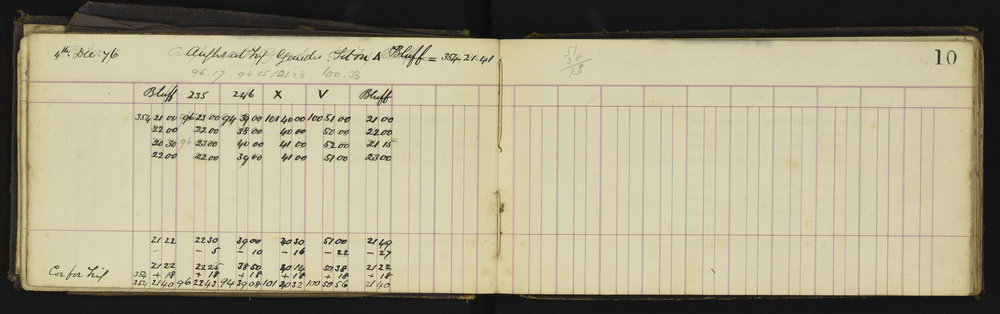 4th Dec. 76 Angles at Trig Set on △ Bluff = 354.21.41
10
96.17 100.38
Bluff 235 246 X V Bluff
354 21 00 96 23 00 94 39 00 101 40 00 100 51 00 21 00
22 00 22 00 38 00 40 00 50 00 22 00
20 30 96 23 00 40 00 41 00 52 00 21 15
22 00 22 00 39 00 41 00 51 00 23 00
21 22 22 30 39 00 40 30 51 00 21 49
- - 5 - 10 - 16 - 22 - 27
21 22 22 25 38 50 40 14 50 38 21 22
Cor for Trig 354 + 18 + 18 + 18 + 18 + 18 + 18
354 21 40 96 22 43 94 39 08 101 40 32 100 50 56 21 40